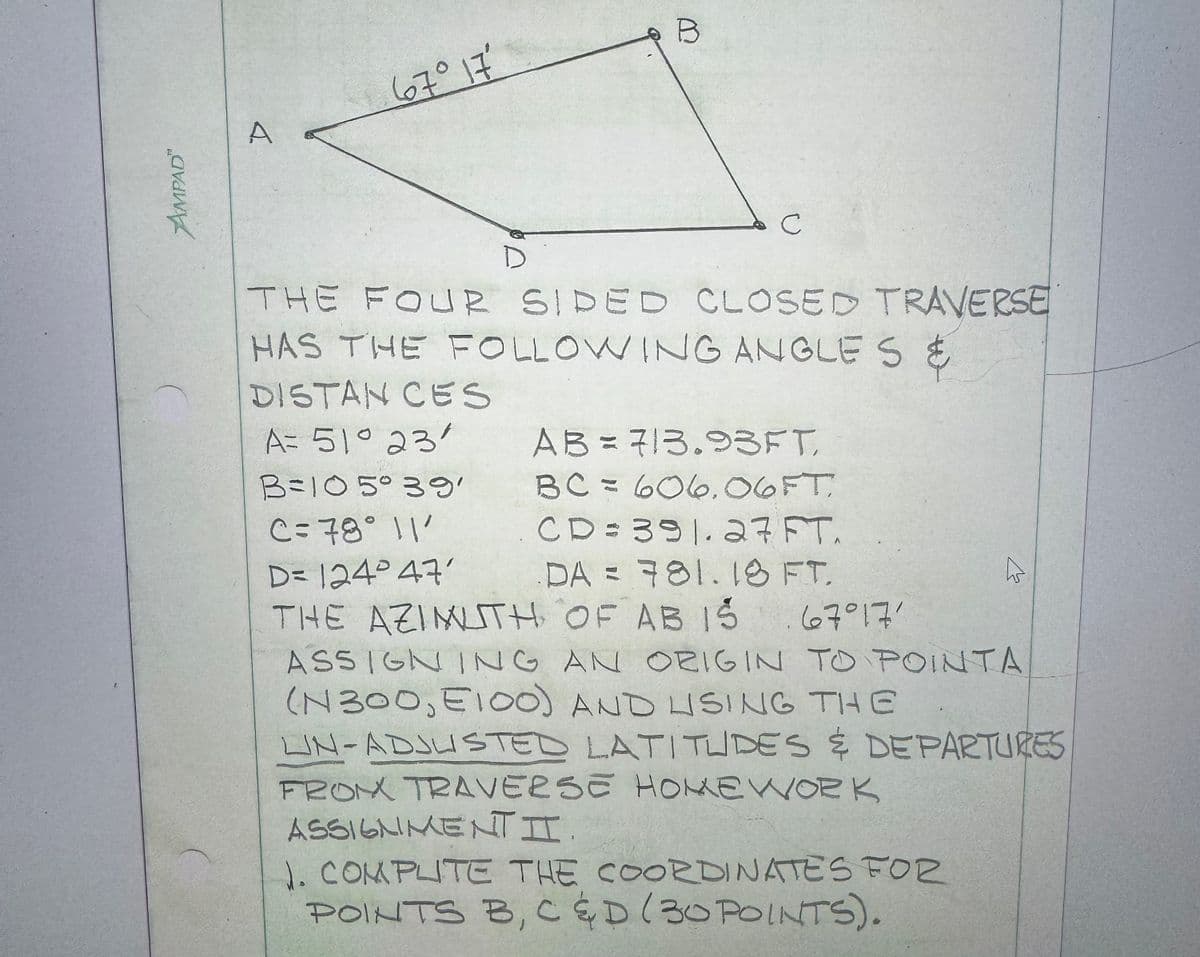 B
67° 17'
A
AMPAD"
C
D
THE FOUR SIDED CLOSED TRAVERSE
HAS THE FOLLOWING ANGLES &
DISTANCES
A= 51° 23' AB = 713.93FT.
B=105° 39' BC = 606.06FT.
C= 78° 11' CD = 391.27 FT.
D= 124° 47' DA = 781.18 FT.
THE AZIMUTH OF AB IS 67°17'
ASSIGNING AN ORIGIN TO POINT A
(N300, E100) AND USING THE
UN-ADJUSTED LATITUDES & DEPARTURES
FROM TRAVERSE HOMEWORK
ASSIGNMENT II.
1. COMPUTE THE COORDINATES FOR
POINTS B, C & D (30 POINTS).